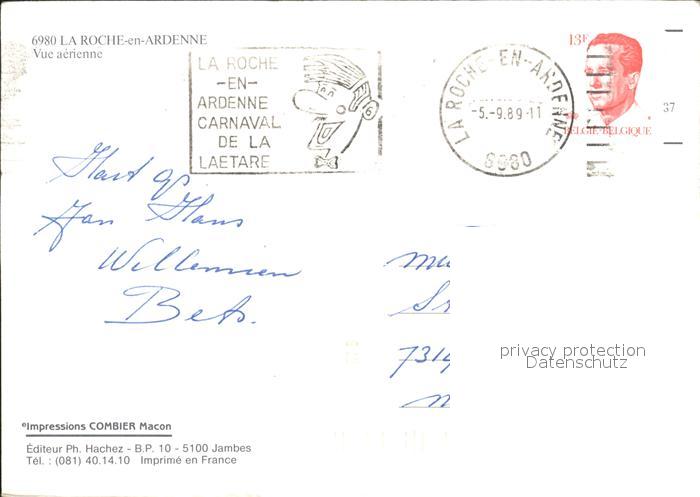 6980 LA ROCHE-en-ARDENNE
Vue aérienne
LA ROCHE
-EN-
ARDENNE
CARNAVAL
DE LA
LAETARE
LA ROCHE-EN-ARDENNE
-5.-9.89-11
6980
13F
BELGIE-BELGIQUE
37
Jan Hans
Willemien
Bets.
privacy protection
Datenschutz
Impressions COMBIER Macon
Éditeur Ph. Hachez - B.P. 10 - 5100 Jambes
Tél. : (081) 40.14.10 Imprimé en France